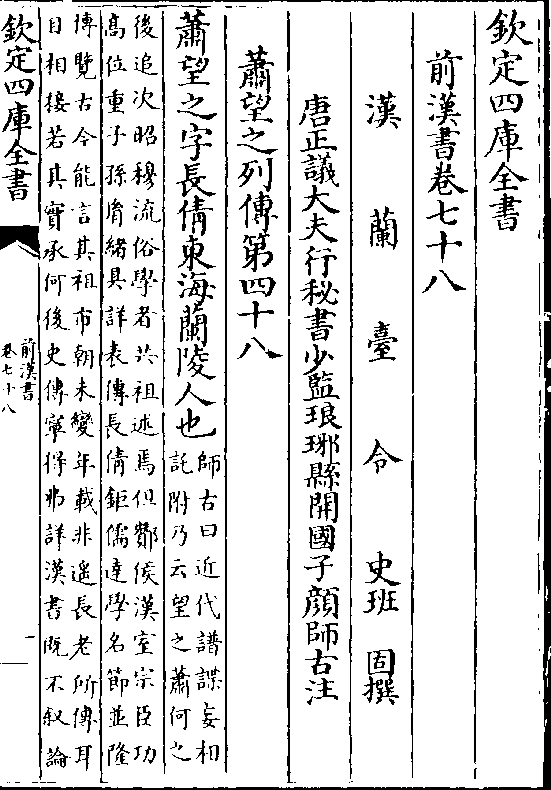 欽定四庫全書
前漢書卷七十八
漢蘭臺令史班固撰
唐正議大夫行秘書少監琅琊縣開國子顔師古注
蕭望之列傳第四十八
蕭望之字長倩東海蘭陵人也
師古曰近代譜諜妄相
託附乃云望之蕭何之
後追次昭穆流俗學者共祖述焉但酇侯漢室宗臣功
高位重子孫胄緒具詳表傳長倩鉅儒達學名節並隆
博覽古今能言其祖市朝未變年載非遙長老所傳耳
目相接若其實承何後史傳寧得弗詳漢書既不叙論
欽定四庫全書
前漢書
卷七十八
一